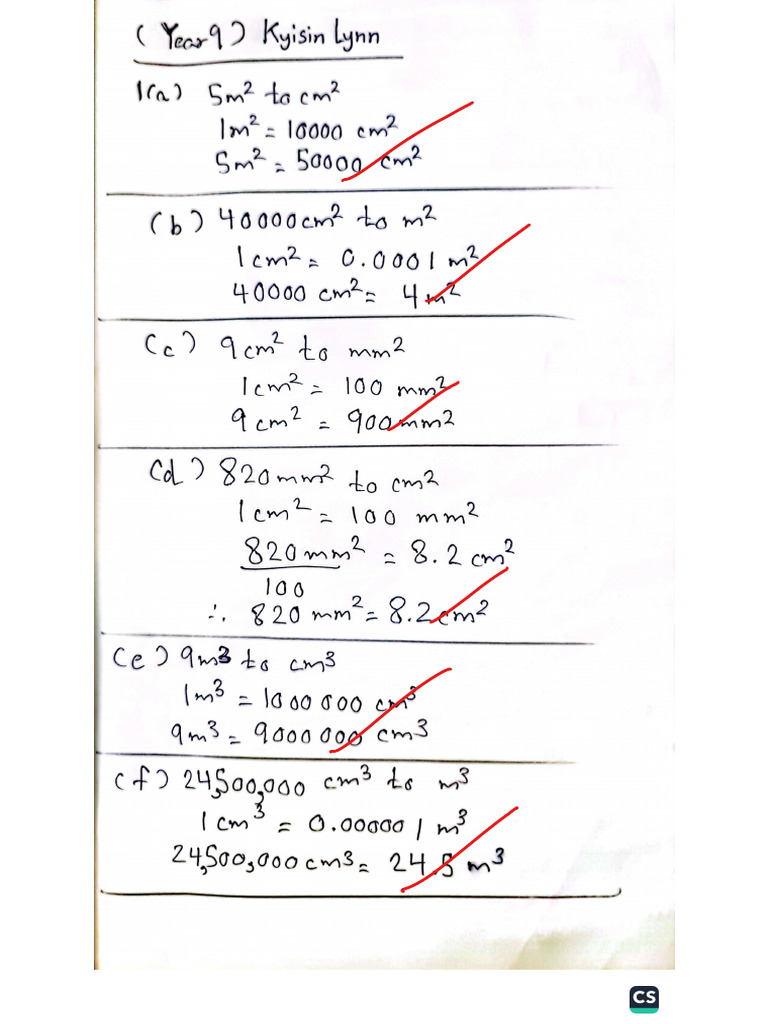 (Year 9) Kyisin Lynn
1(a) 5m² to cm²
1m² = 10000 cm²
5m² = 50000 cm²
(b) 40000cm² to m²
1cm² = 0.0001 m²
40000 cm² = 4m²
(c) 9cm² to mm²
1cm² = 100 mm²
9cm² = 900mm²
(d) 820mm² to cm²
1cm² = 100 mm²
820mm² = 8.2 cm²
100
∴ 820 mm² = 8.2cm²
(e) 9m3 to cm3
1m3 = 1000 000 cm3
9m3 = 9000 000 cm3
(f) 24,500,000 cm3 to m3
1cm3 = 0.000001 m3
24,500,000cm3 = 24.5 m3
CS